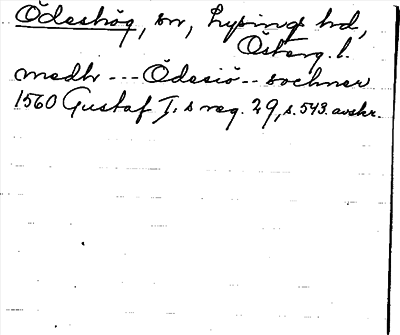 Ödeshög, sn, Lysings hd,
Österg. l.
medh --- Ödesiö -- sochner
1560 Gustaf I:s reg. 29, s. 543. avskr.